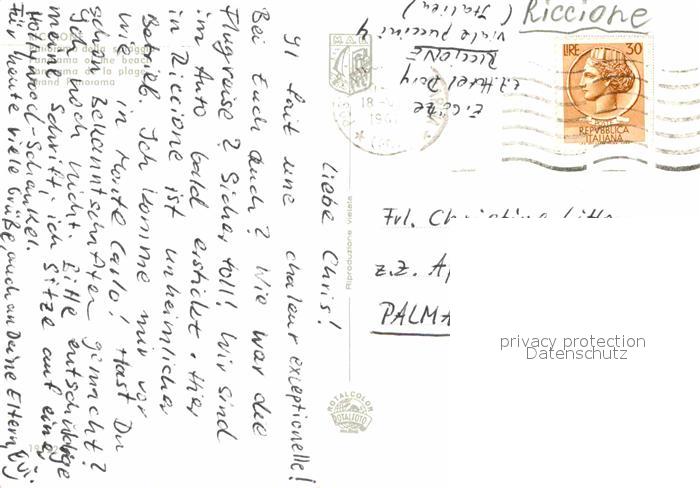 Riccione
Liebe Chris!
Il fait une chaleur exceptionelle!
Bei Euch auch? Wie war die
Flugreise? Sicher toll! Wir sind
im Auto bald erstickt. Hier
in Riccione ist unheimlicher
Betrieb. Ich komme mir vor
wie in Monte Carlo! Hast Du
schon Bekanntschaften gemacht?
Ich noch nicht. Bitte entschuldige
meine Schrift, ich sitze auf einem
Hollywood-Schaukel.
Für heute viele Grüße, auch an Deine Eltern,
RICCIONE
Panorama della spiaggia
Panorama of the beach
Panorama de la plage
Strand Panorama
z.Z. Hotel
RICCIONE
Viale Puccini 4
(Italien)
M.A.R.
18
LIRE 30
REPVBBLICA
ITALIANA
Frl.
z.Z.
PALMA
Riproduzione vietata
ROTALCOLOR
ROTALFOTO
privacy protection
Datenschutz